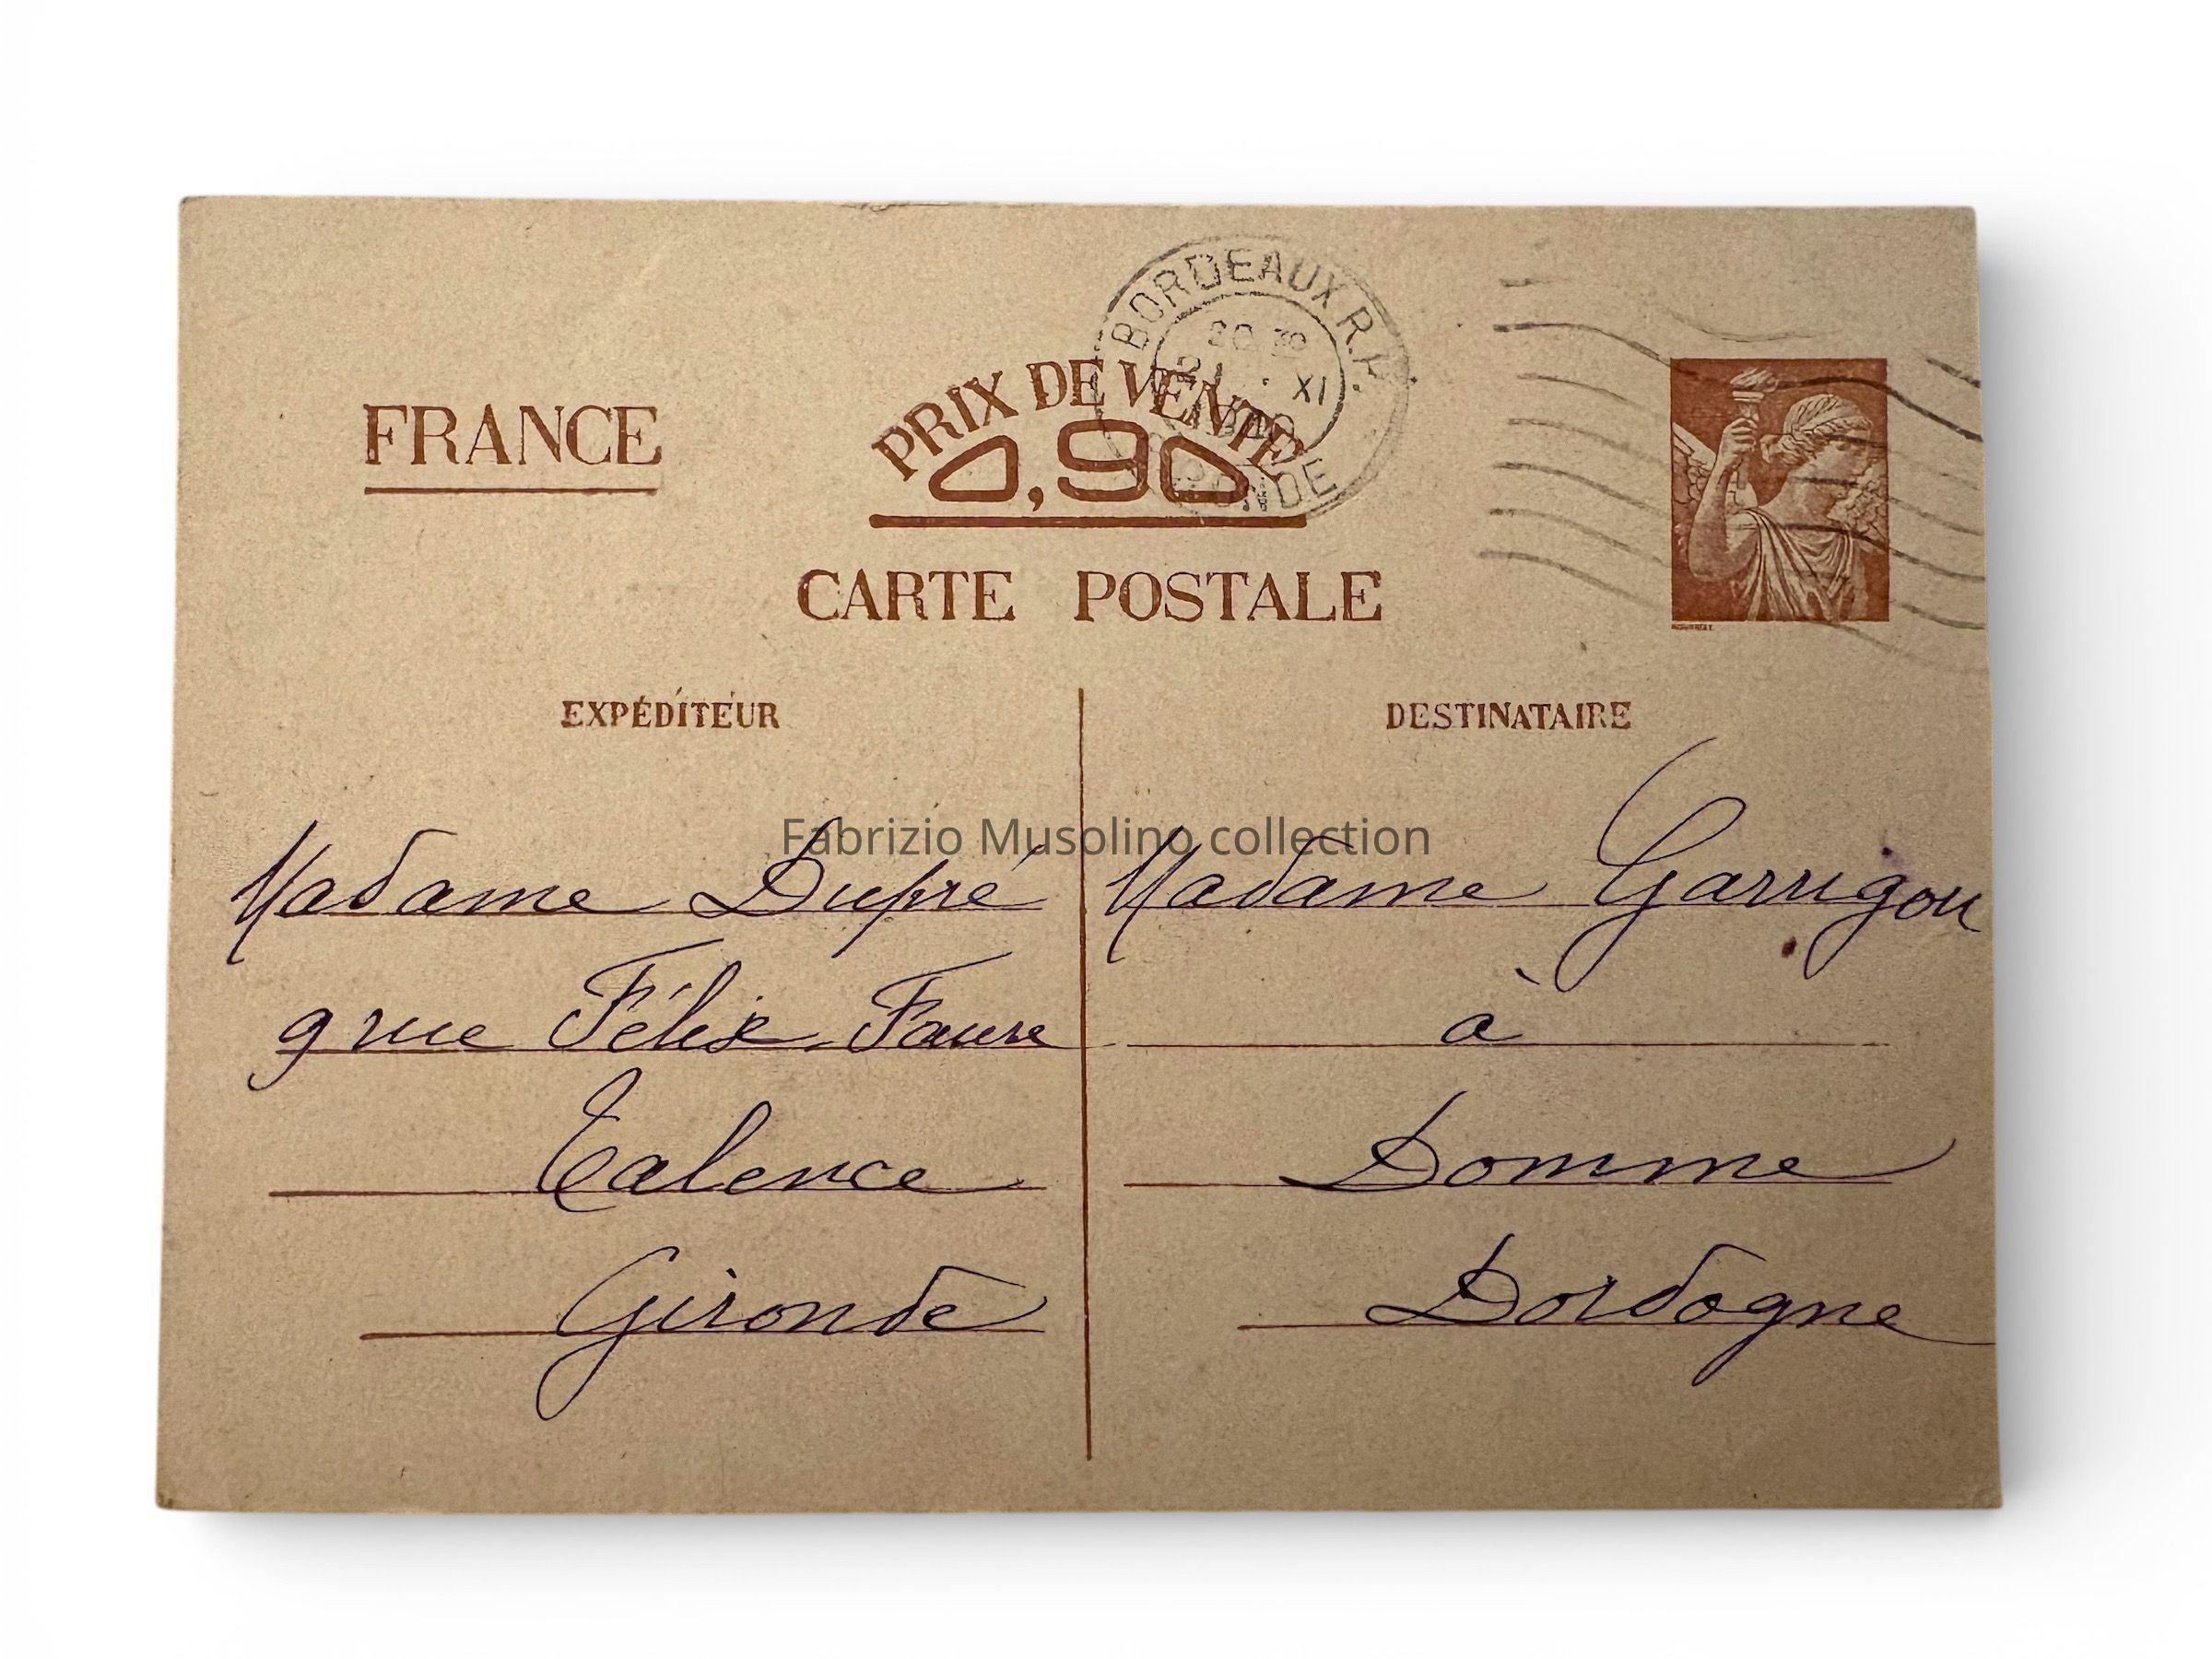 BORDEAUX R.P.
XI
FRANCE
PRIX DE VENTE
0,90
CARTE POSTALE
EXPÉDITEUR
DESTINATAIRE
Fabrizio Musolino collection
Madame Dupré
9 rue Félix-Faure
Talence
Gironde
Madame Garrigou
à
Domme
Dordogne